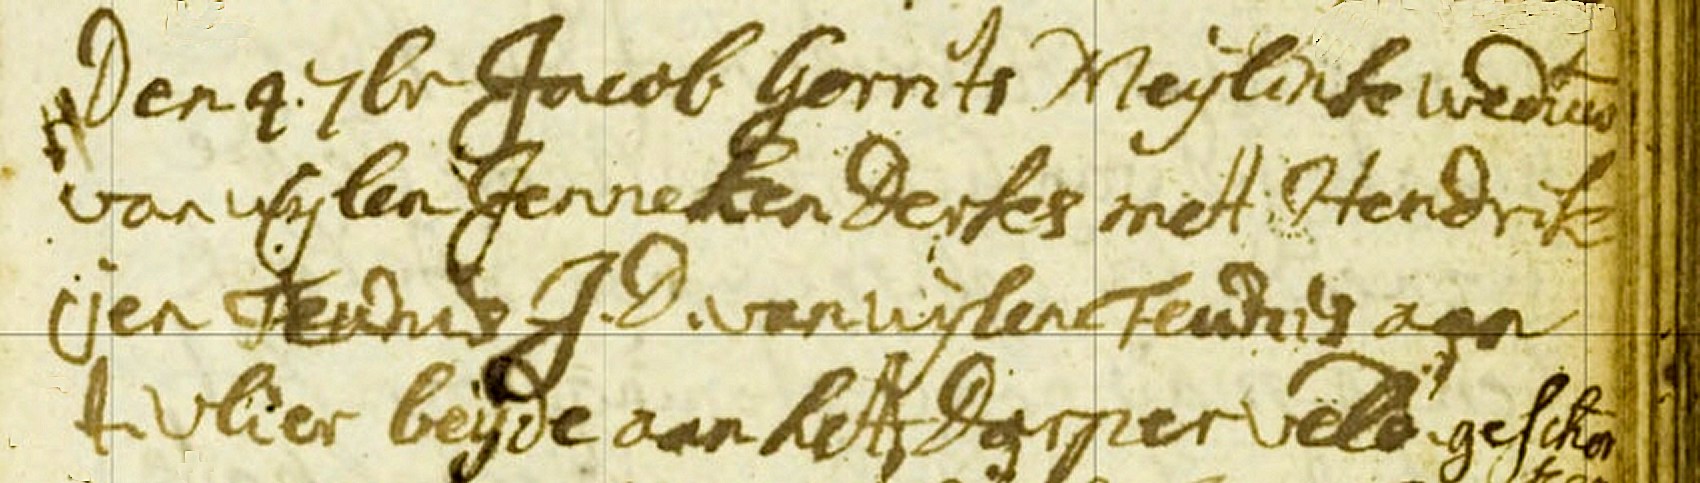 Den 9. 7br Jacob Gerrits Meylink wedue
van wylen Jenneken Derkes mett Hendrik
ijen Teunis J. D. van wijlen Teunis aan
t vlier beijde aan hett Darper veld